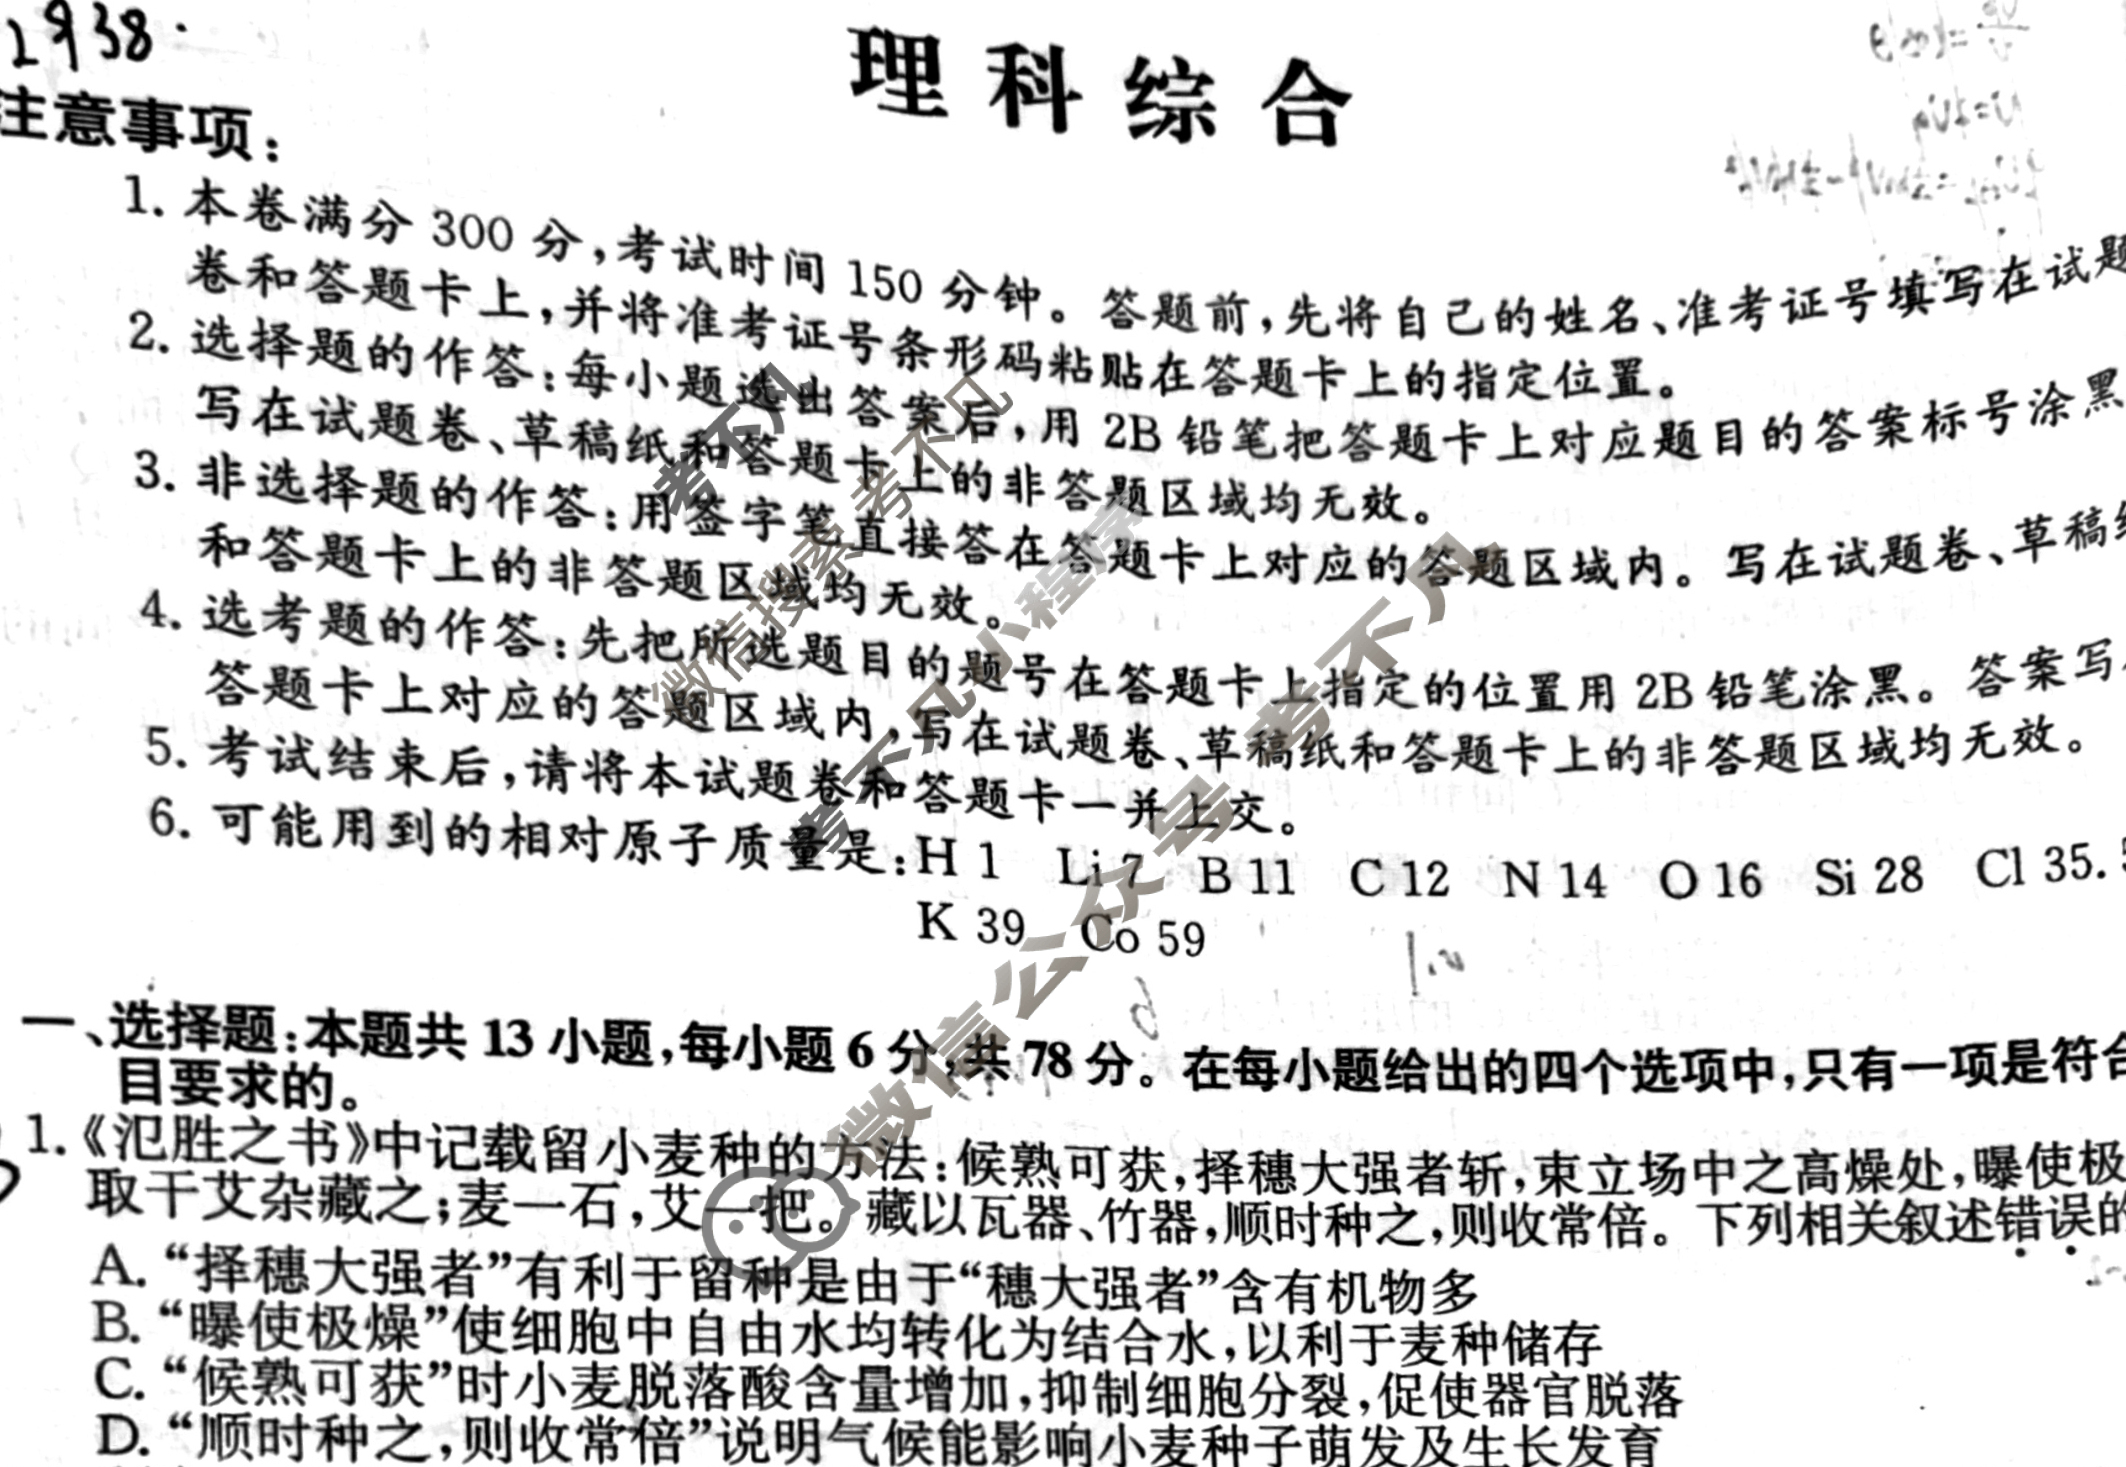 2938
理科综合
注意事项：
1. 本卷满分 300 分，考试时间 150 分钟。答题前，先将自己的姓名、准考证号填写在试题
卷和答题卡上，并将准考证号条形码粘贴在答题卡上的指定位置。
2. 选择题的作答：每小题选出答案后，用 2B 铅笔把答题卡上对应题目的答案标号涂黑
写在试题卷、草稿纸和答题卡上的非答题区域均无效。
3. 非选择题的作答：用签字笔直接答在答题卡上对应的答题区域内。写在试题卷、草稿
和答题卡上的非答题区域均无效。
4. 选考题的作答：先把所选题目的题号在答题卡上指定的位置用 2B 铅笔涂黑。答案写
答题卡上对应的答题区域内，写在试题卷、草稿纸和答题卡上的非答题区域均无效。
5. 考试结束后，请将本试题卷和答题卡一并上交。
6. 可能用到的相对原子质量是：H 1 Li 7 B 11 C 12 N 14 O 16 Si 28 Cl 35.5
K 39 Co 59
一、选择题：本题共 13 小题，每小题 6 分，共 78 分。在每小题给出的四个选项中，只有一项是符合
目要求的。
1.《氾胜之书》中记载留小麦种的方法：候熟可获，择穗大强者斩，束立场中之高燥处，曝使极
取干艾杂藏之；麦一石，艾一把。藏以瓦器、竹器，顺时种之，则收常倍。下列相关叙述错误的
A. “择穗大强者”有利于留种是由于“穗大强者”含有机物多
B. “曝使极燥”使细胞中自由水均转化为结合水，以利于麦种储存
C. “候熟可获”时小麦脱落酸含量增加，抑制细胞分裂，促使器官脱落
D. “顺时种之，则收常倍”说明气候能影响小麦种子萌发及生长发育
考不凡
微信搜索 考不凡
考不凡小程序
微信公众号 考不凡